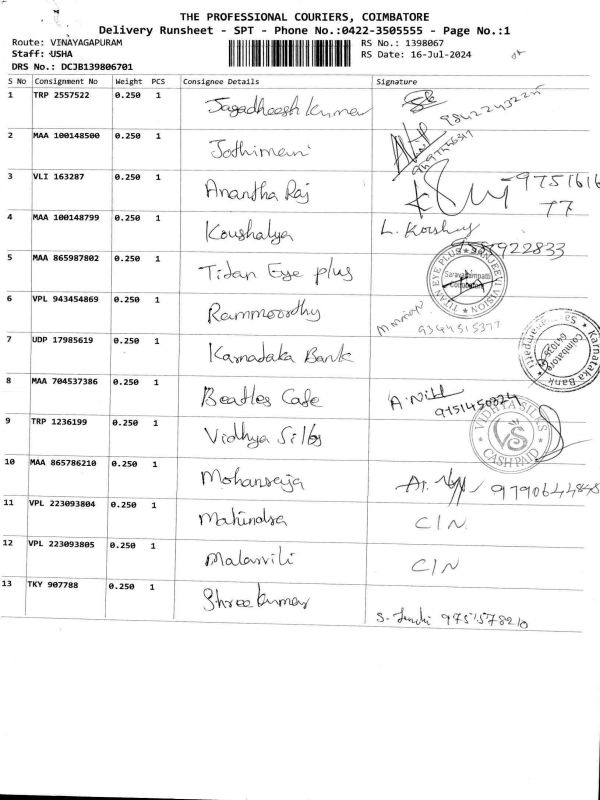 THE PROFESSIONAL COURIERS, COIMBATORE
Delivery Runsheet - SPT - Phone No.:0422-3505555 - Page No.:1
Route: VINAYAGAPURAM
RS No.: 1398067
Staff: USHA
RS Date: 16-Jul-2024
DRS No.: DCJB139806701
S No Consignment No Weight PCS Consignee Details Signature
1 TRP 2557522 0.250 1 Jagadheesh kumar
2 MAA 100148500 0.250 1 Jothimani
3 VLI 163287 0.250 1 Anantha Raj -9751616
77
4 MAA 100148799 0.250 1 Koushalya L.
5 MAA 865987802 0.250 1 Titan Eye plus
TITAN EYE PLUS SANJEEVI VISION
Saravanampatti
Coimbatore
6 VPL 943454869 0.250 1 Rammoorthy
9344515377
7 UDP 17985619 0.250 1 Karnataka Bank
Karnataka Bank
Coimbatore
8 MAA 704537386 0.250 1 Beatles Cafe
9151450324
9 TRP 1236199 0.250 1 Vidhya Silks
VIDHYA SILKS
VS
CASH PAID
10 MAA 865786210 0.250 1 Mohanraja 9790644848
11 VPL 223093804 0.250 1 Mahindra C/N
12 VPL 223093805 0.250 1 Malarvili C/N
13 TKY 907788 0.250 1 Shreekumar
9751578210